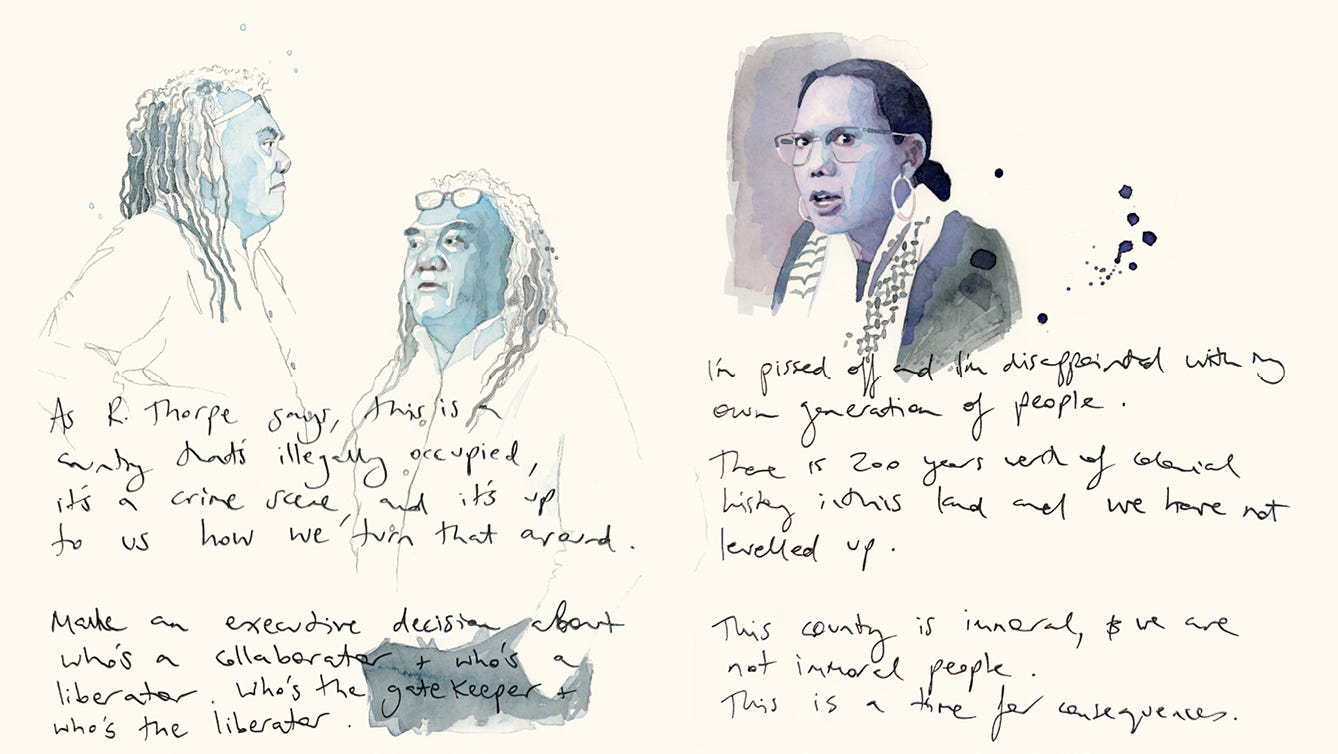 As R. Thorpe says, this is a
country that's illegally occupied,
it's a crime scene, and it's up
to us how we turn that around.
Make an executive decision about
who's a collaborator + who's a
liberator. Who's the gatekeeper +
who's the liberator.
I'm pissed off and I'm disappointed with my
own generation of people.
There is 200 years worth of colonial
history in this land and we have not
levelled up.
This county is immoral, & we are
not immoral people.
This is a time for consequences.